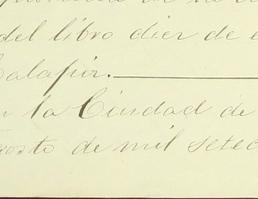 del libro diez de e
Calafia.
n la Ciudad de
gosto de mil setec